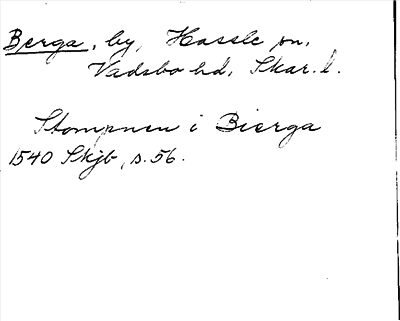 Berga, by, Hassle sn,
Vadsbo hd, Skar. l.
Stompnen i Bierga
1540 Skjb, s. 56.